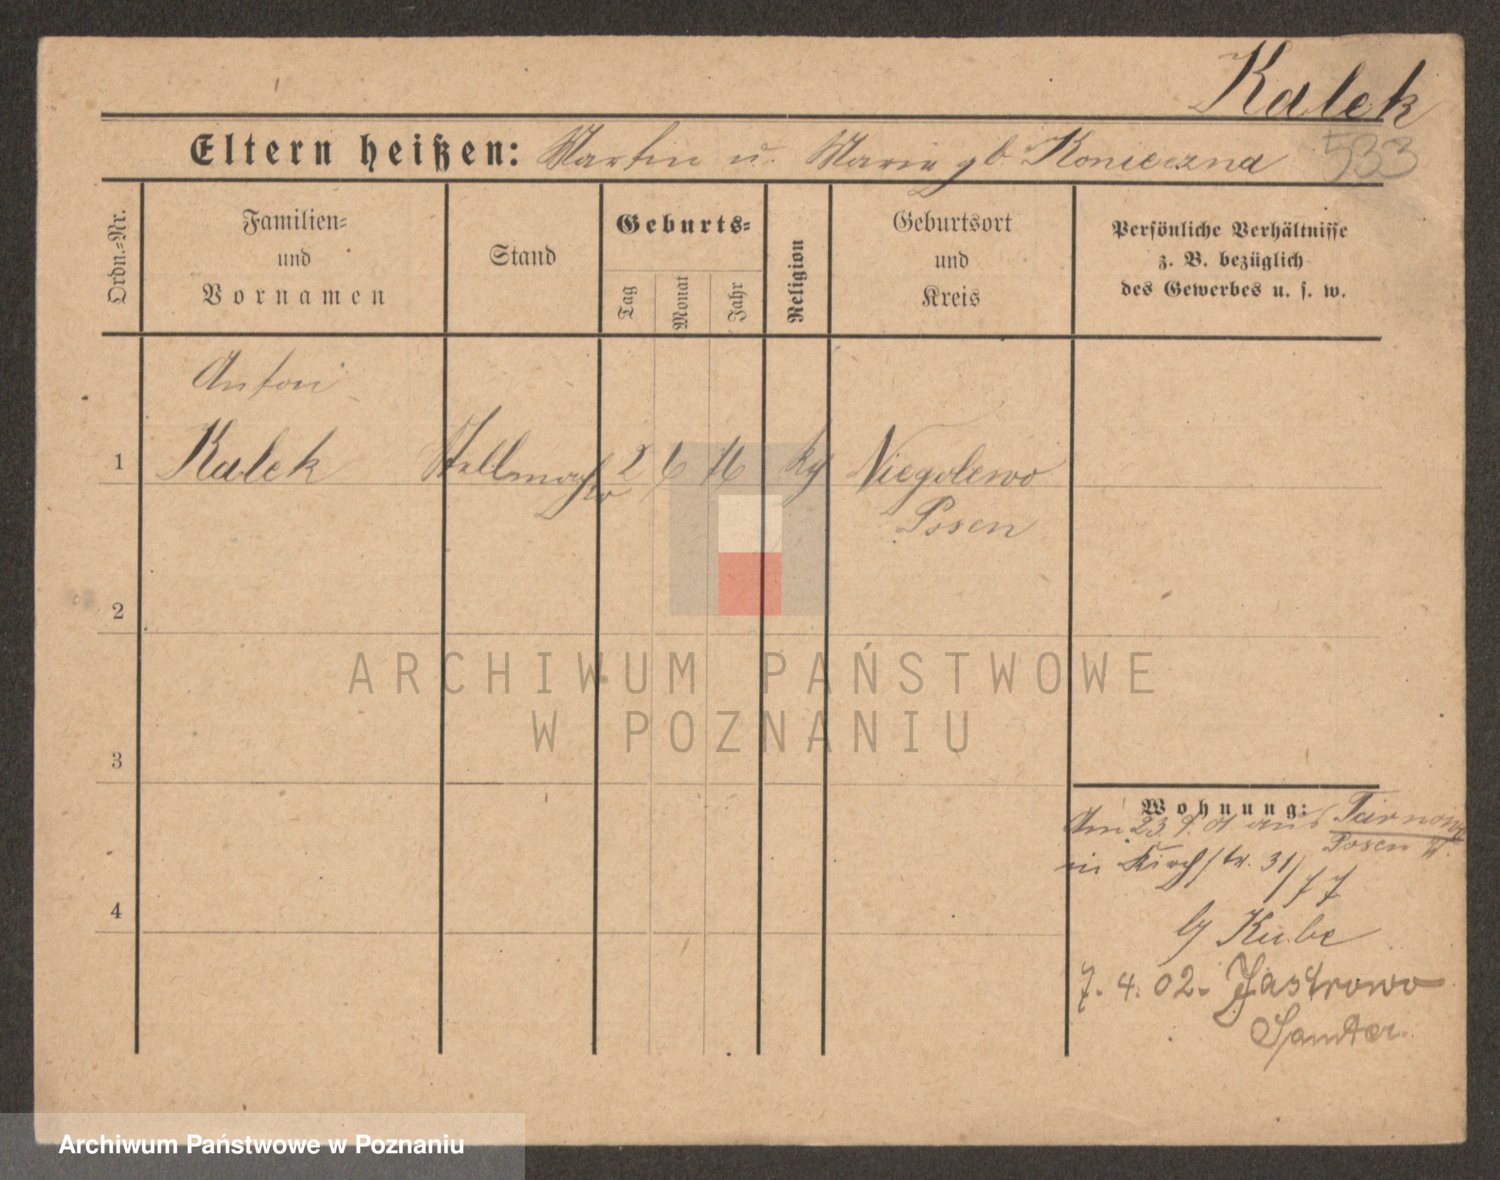 Kalek
Eltern heißen: Martin u. Marie gb Konieczna 533
Ordn.=Nr.
Familien= und Vornamen
Stand
Geburts=
Tag
Monat
Jahr
Religion
Geburtsort und Kreis
Persönliche Verhältnisse
z. B. bezüglich
des Gewerbes u. s. w.
Anton
1 Kalek Stellmacher 2 6 76 kg Niegolewo
Posen
2
3
4
ARCHIWUM PAŃSTWOWE
W POZNANIU
Wohnung:
Am 23.9. 01 aus Tarnowo
Posen W.
in Kirchstr. 31/77
by Kube
7. 4. 02. Jastrowo
Samter
Archiwum Państwowe w Poznaniu